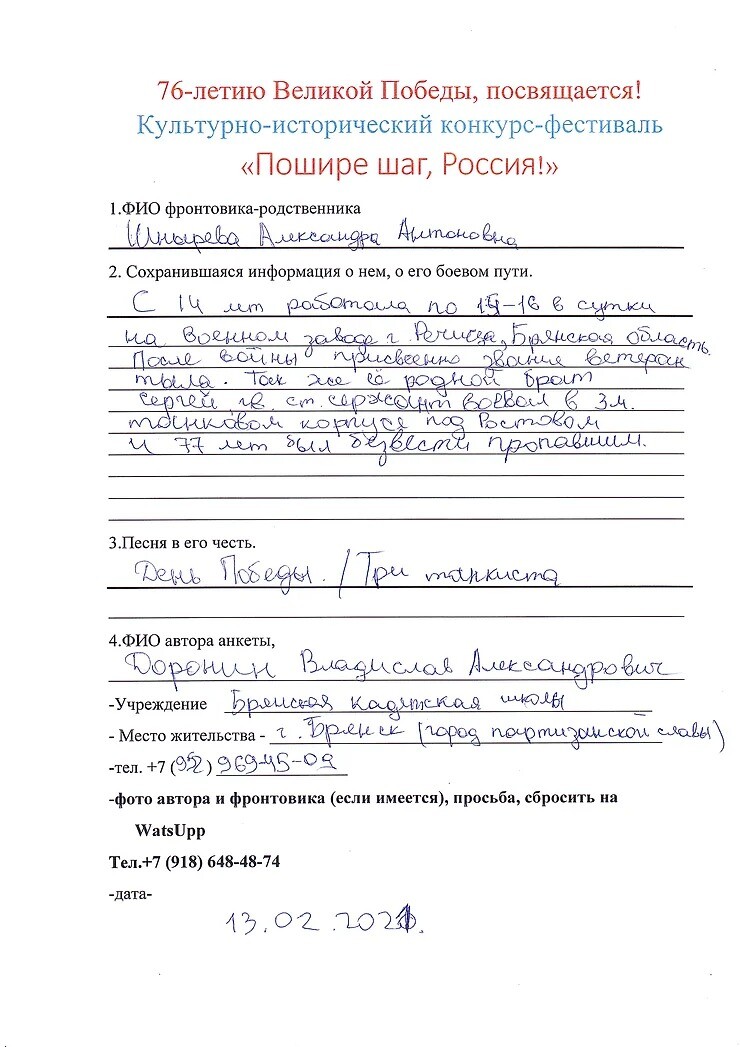 76-летию Великой Победы, посвящается!
Культурно-исторический конкурс-фестиваль
«Пошире шаг, Россия!»
1.ФИО фронтовика-родственника
Шнырева Александра Антоновна
2. Сохранившаяся информация о нем, о его боевом пути.
С 14 лет работала по 15-16 в сутки
на военном заводе г. Речица, Брянская область.
После войны присвеенно звание ветеран
тыла. Так же её родной брат
Сергей, гв. ст. сержант воевал в 3 м.
танковом корпусе под Ростовом
и 77 лет был безвести пропавшим.
3.Песня в его честь.
День Победы. / Три танкиста
4.ФИО автора анкеты,
Доронин Владислав Александрович
-Учреждение Брянская кадетская школы
- Место жительства - г. Брянск (город партизанской славы)
-тел. +7 (952) -09
-фото автора и фронтовика (если имеется), просьба, сбросить на
WatsUpp
Тел.+7 (918) 648-48-74
-дата-
13.02.2021.